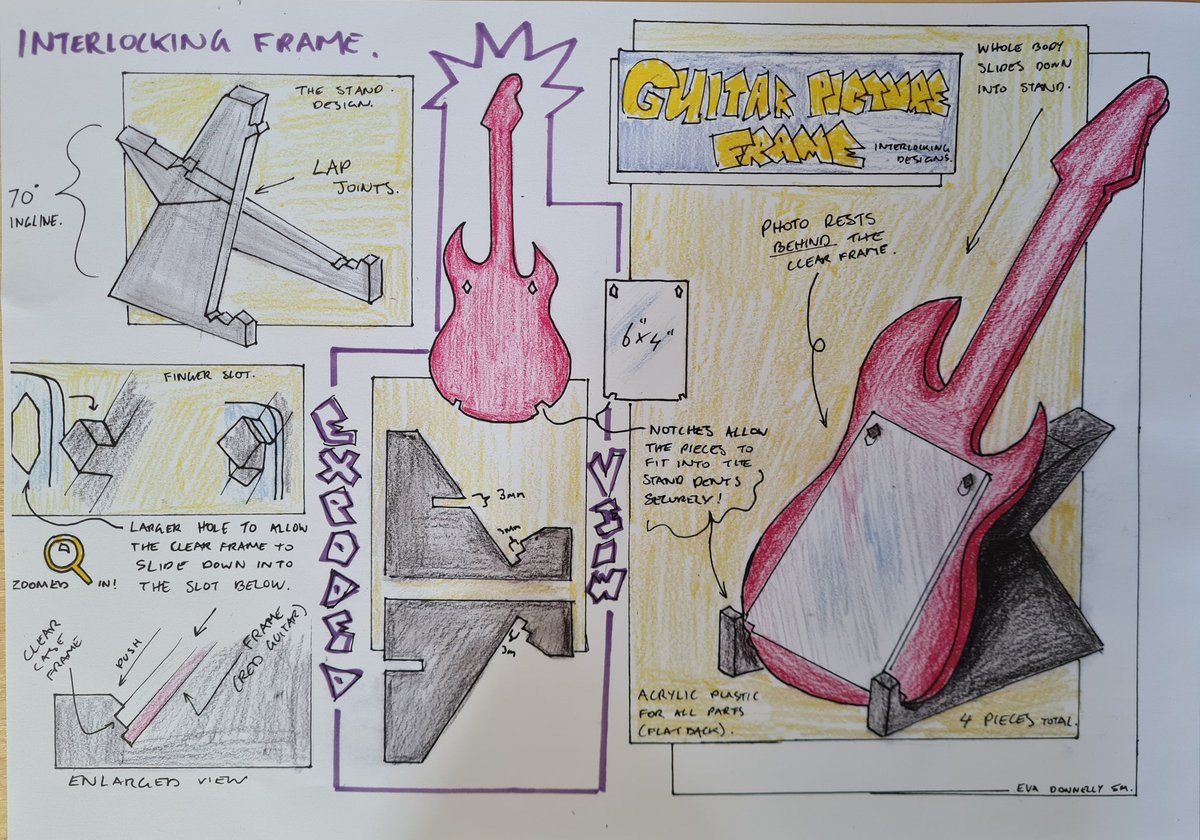 INTERLOCKING FRAME.
THE STAND
DESIGN.
LAP
JOINTS.
70°
INGLINE.
FINGER SLOT.
LARGER HOLE TO ALLOW
THE CLEAR FRAME TO
SLIDE DOWN INTO
THE SLOT BELOW.
ZOOMED IN!
CLEAR
CASE
FRAME
PUSH
FRAME
(RED GUITAR)
ENLARGED VIEW
EXPLODED
VIEW
3mm
3mm
3m
6"x4"
NOTCHES ALLOW
THE PIECES TO
FIT INTO THE
STAND DENTS
SECURELY!
GUITAR PICTURE
FRAME
INTERLOCKING
DESIGNS.
WHOLE BODY
SLIDES DOWN
INTO STAND.
PHOTO RESTS
BEHIND THE
CLEAR FRAME.
ACRYLIC PLASTIC
FOR ALL PARTS
(FLAT BACK).
4 PIECES TOTAL.
EVA DONNELLY 5M.